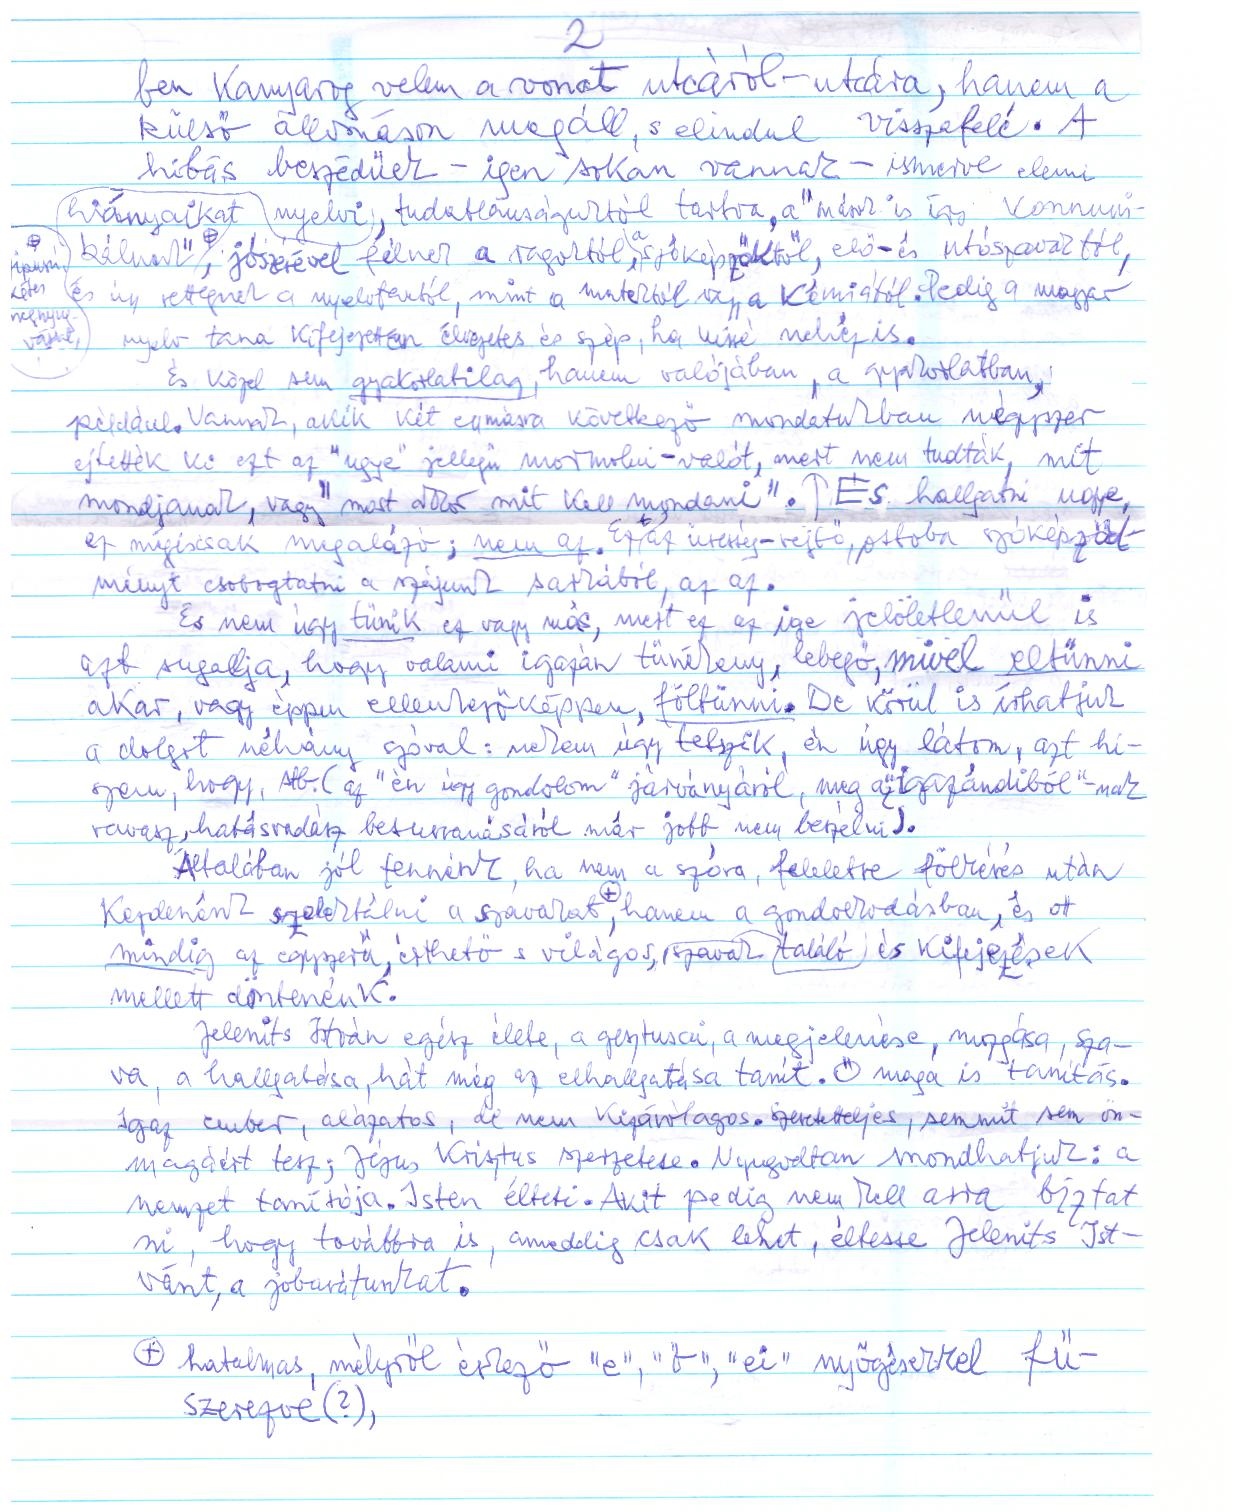 2
ben kanyarog velem a vonat utcáról-utcára, hanem a
külső állomáson megáll, s elindul visszafelé. A
hibás beszédűek – igen sokan vannak – ismerve elemi
hiányaikat nyelvi, tudatlanságuktól tartva, a "másr is így kommuni-
kálnak", jószerével félnek a ragoktól, a szóképzőktől, elő- és utószavaktól,
és úgy rettegnek a nyelvtantól, mint a matektól vagy a kémiától. Pedig a magyar
nyelv tana kifejezetten élvezetes és szép, ha kissé nehéz is.
És közel sem gyakorlatilag, hanem valójában, a gyakorlatban,
például. Vannak, akik két egymásra következő mondatukban négyszer
ejtették ki ezt az "ugye" jellegű mormolni-valót, mert nem tudták, mit
mondjanak, vagy "most akkor mit kell mondani". És hallgatni ugye,
ez mégiscsak megalázó; nem az. Ezt az üresség-rejtő, ostoba szóképződ-
ményt csobogtatni a szájunk sarkából, az az.
És nem úgy tűnik ez vagy más, mert ez az ige jelöletlenül is
azt sugallja, hogy valami igazán tünékeny, lebegő, mivel eltűnni
akar, vagy éppen ellenkezőképpen, föltűnni. De körül is írhatjuk
a dolgot néhány szóval: nekem úgy tetszik, én úgy látom, azt hi-
szem, hogy, stb. (az "én úgy gondolom" járványáról, meg az "igazándiból"-nak
ravasz, hatásvadász besurranásáról már jobb nem beszélni).
Általában jól tennénk, ha nem a szóra, feleletre fölkérés után
kezdenénk szelektálni a szavakat ⊕, hanem a gondolkodásban, és ott
mindig az egyszerű, érthető s világos, szavak találó és kifejezések
mellett döntenénk.
Jelenits István egész élete, a gesztusai, a megjelenése, mozgása, sza-
va, a hallgatása, hát még az elhallgatása tanít. Ő maga is tanítás.
Igaz ember, alázatos, de nem kizárólagos. Szeretetteljes, semmit sem ön-
magáért tesz; Jézus Krisztus szerzetese. Nyugodtan mondhatjuk: a
nemzet tanítója. Isten élteti. Akit pedig nem kell arra bíztat
ni, hogy továbbra is, ameddig csak lehet, éltesse Jelenits Ist-
vánt, a jóbarátunkat.
⊕ hatalmas, mélyről érkező "e", "ö", "ei" nyögésekkel fű-
szerezve (?),